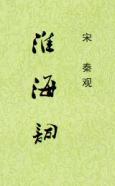 宋 秦观
淮海詞